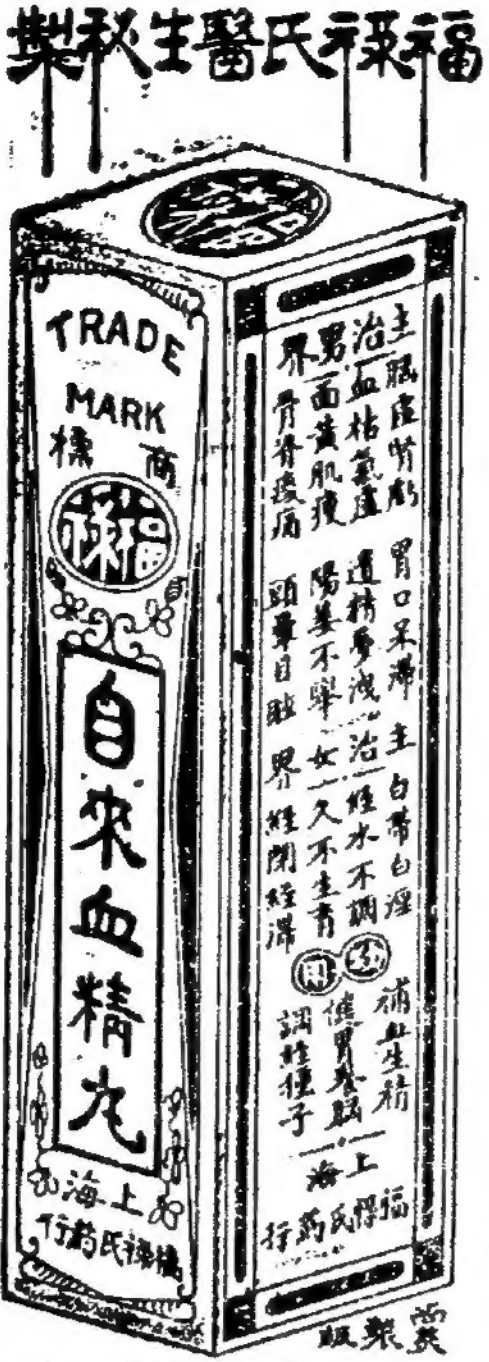 福祿氏醫生秘製
福祿
TRADE
MARK
商標
福祿
自來血精丸
上海
福祿氏藥行
主治男界
腦虛腎虧
血枯氣虛
面黃肌瘦
骨脊痠痛
胃口呆滯
遺精夢洩
陽萎不舉
頭暈目眩
主治女界
白帶白淫
經水不調
久不生育
經閉經滯
功用
補血生精
健胃養腦
調經種子
上海
福祿氏药行